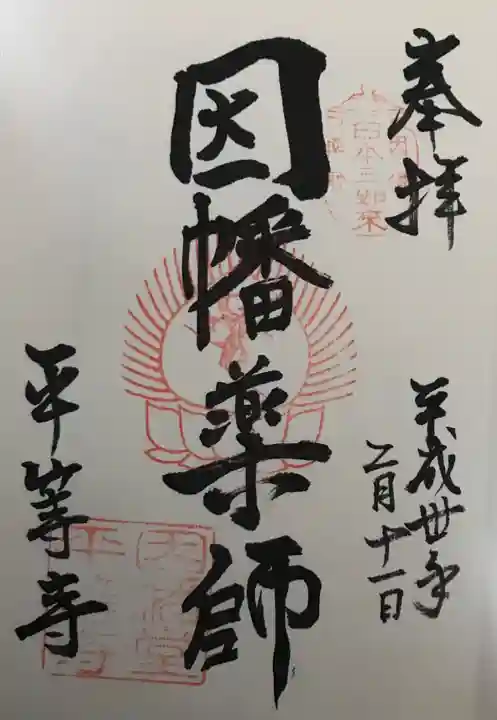 奉拝
平成卅年
二月十一日
因幡薬師
平等寺
日本三如来
因幡堂
平等寺